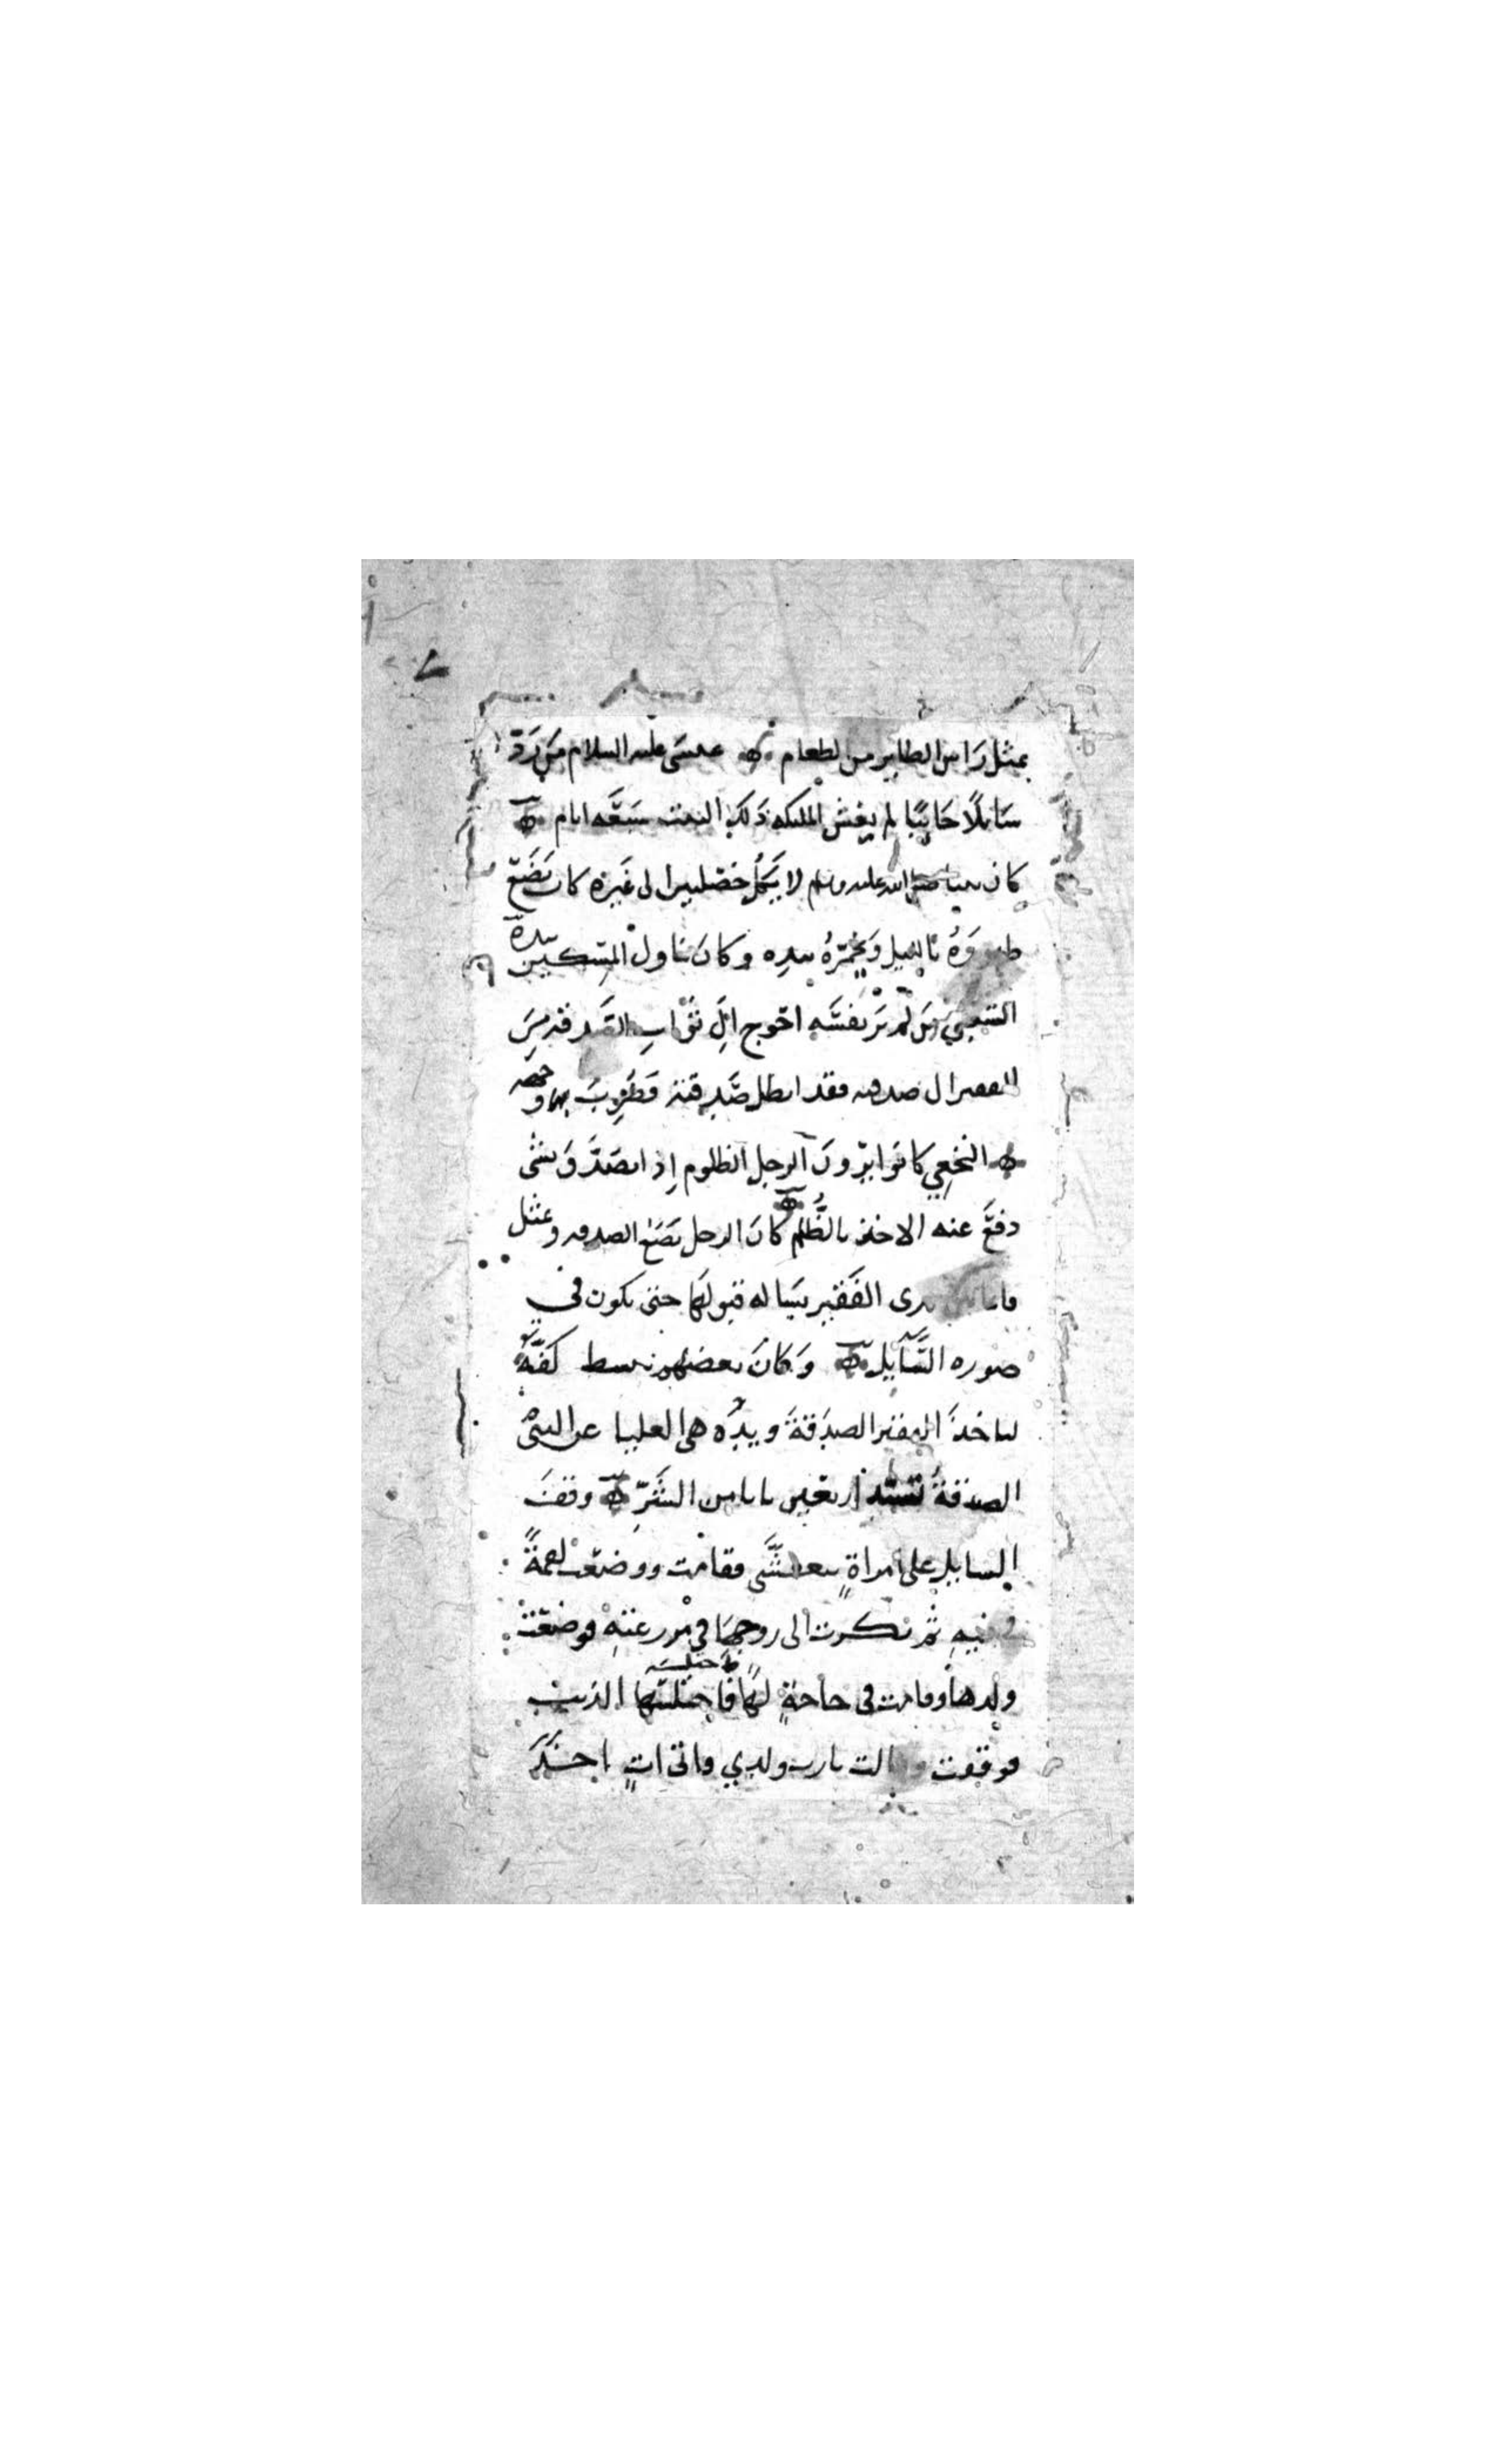 بمثل رَاس الطاير من الطعام ه عيسَى عليه السلام مَن رَدّ
سَايلًا خايبًا لم يغش الملىكه ذَلك البيت سَبعَه ايام ه
كان نبينا صلى الله عليه وسلم لا يَكِلُ خصلتين الى غيره كان يَضَع
طهورَهُ بالليل وَيُخمّرُهُ بيده وكان يناول المِسكين بيده
الشعبي من لم يَرَ نفسَه احوج الَى ثوابِ الصَّدقه مِنَ
الفقير الى صدقته فقد ابطل صَدقته وَضُرِبَ بها وجهه
ه النخعِي كانوا يرون ان الرجل الظلوم إذا تصَدَّقَ بشى
دفعَ عنه الاخذ بالظُّلم ه كانَ الرجل يضَع الصدقه ويمثل
قايما بين يدى الفَقير يسَاله قبولهَا حتى يكون في
صوره السَّايل ه وَكانَ بعضهم يبسط كفَّهُ
لياخذَ الفقير الصدَقةَ ويدُه هى العليا عن النبى
الصدقةُ تسُدّ سبعين بابا من الشَّرِّ ه وقفَ
السايل على امراةٍ تتعشَّى فقامت ووضعَت لقمةً
في فيهِ ثم بكرت الى زوجهَا في مزرعته فوضعَت
ولدها وقامت في حاجةٍ لهَا فاختلسَه الذيب
فوقفت وقالت يارب ولدي فاتى اتٍ اخذ